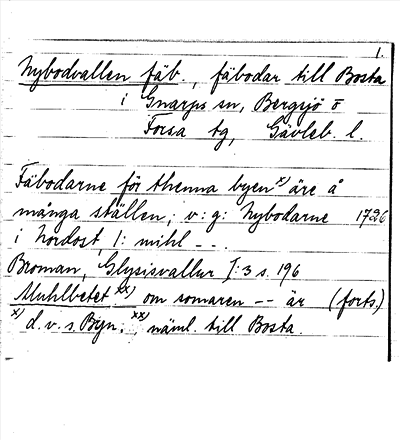 1.
Nybodvallen fäb., fäbodar till Bosta
i Gnarps sn, Bergsjö o
Forsa tg, Gävleb. l.
Fäbodarne för thenna byen x) äre å
många ställen, v: g: Nybodarne 1726
i Nordost 1: mihl - - .
Broman, Glysisvallur I: 3 s. 196
Muhlbetet xx) om somaren -- är (forts.)
x) d. v. s. Byn. xx) näml. till Bosta.